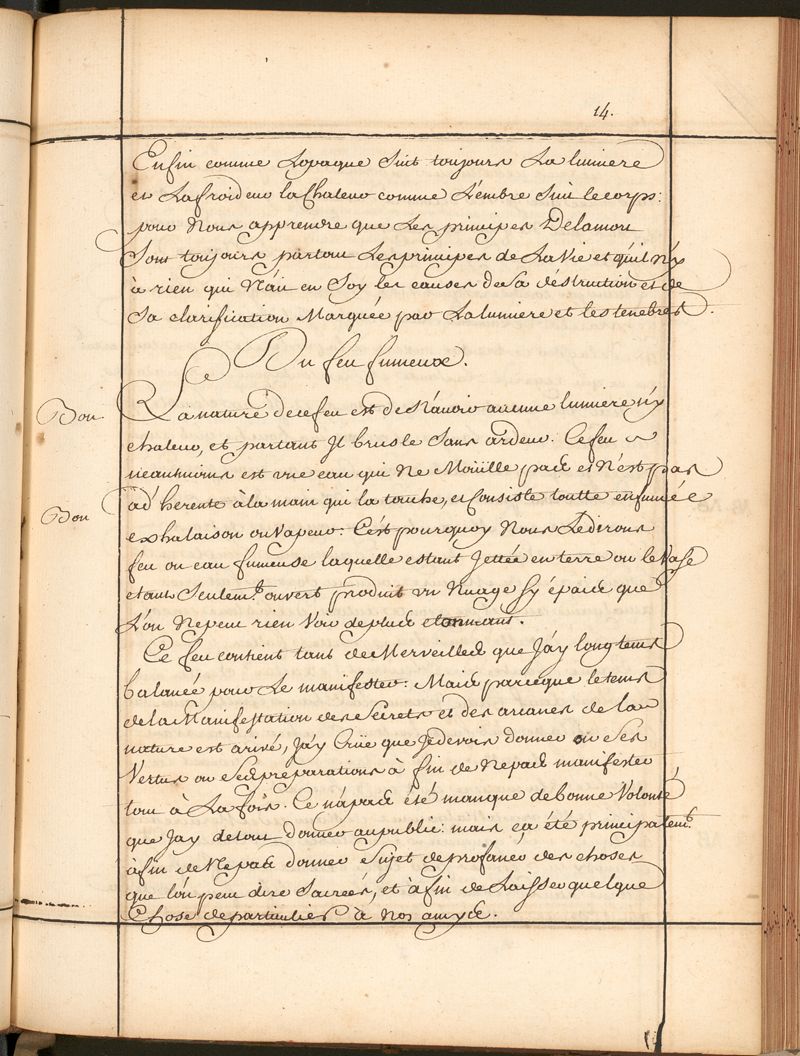 14.
Enfin comme Lopaque suit toujours La lumiere
et La froideur la Chaleur comme L'embre suit le corps:
pour Nous apprendre que Les principes De la mort
Sont toujours partout Les principes de La Vie et qu'il n'y
à rien qui N'ait en Soy les causes de Sa déstruction et de
Sa clarification Marquée par La lumiere et les tenebres.
Du feu fumeux.
Bon
La nature de ce feu est de N'avoir aucune lumiere n'y
chaleur, et partant Jl brusle Sans ardeur. Ce feu
neantmoins est une eau qui Ne Moüille pas et N'est pas
Bon
ad'herente à la main qui la touche, et Consiste toutte en fumée
exhalaison ou Vapeur. C'est pourquoy Nous Le dirons
feu ou eau fumeuse laquelle estant Jettée en terre ou le Vase
etant Seulemt. ouvert produit un Nuage Sy épais que
L'on Ne peut rien Voir de plus etonnant.
Ce feu contient tant de Merveilles que J'ay longtems
balancé pour Le manifester. Mais parceque le tems
de la Manifestation des Secrets et des arcanes de la
nature est arivé, J'ay Crüe que Je devois donner ou Ses
Vertus ou Ses preparations à fin de Ne pas manifester
tout à La fois. Ce n'a pas été manque de bonne Volonté
que J'ay de tout donner au public: mais ça été principalemt.
àfin de Ne pas donner Sujet de profaner des choses
que l'on peut dire Sacreés, et àfin de Laisser quelque
Chose de particulier à Nos amys.